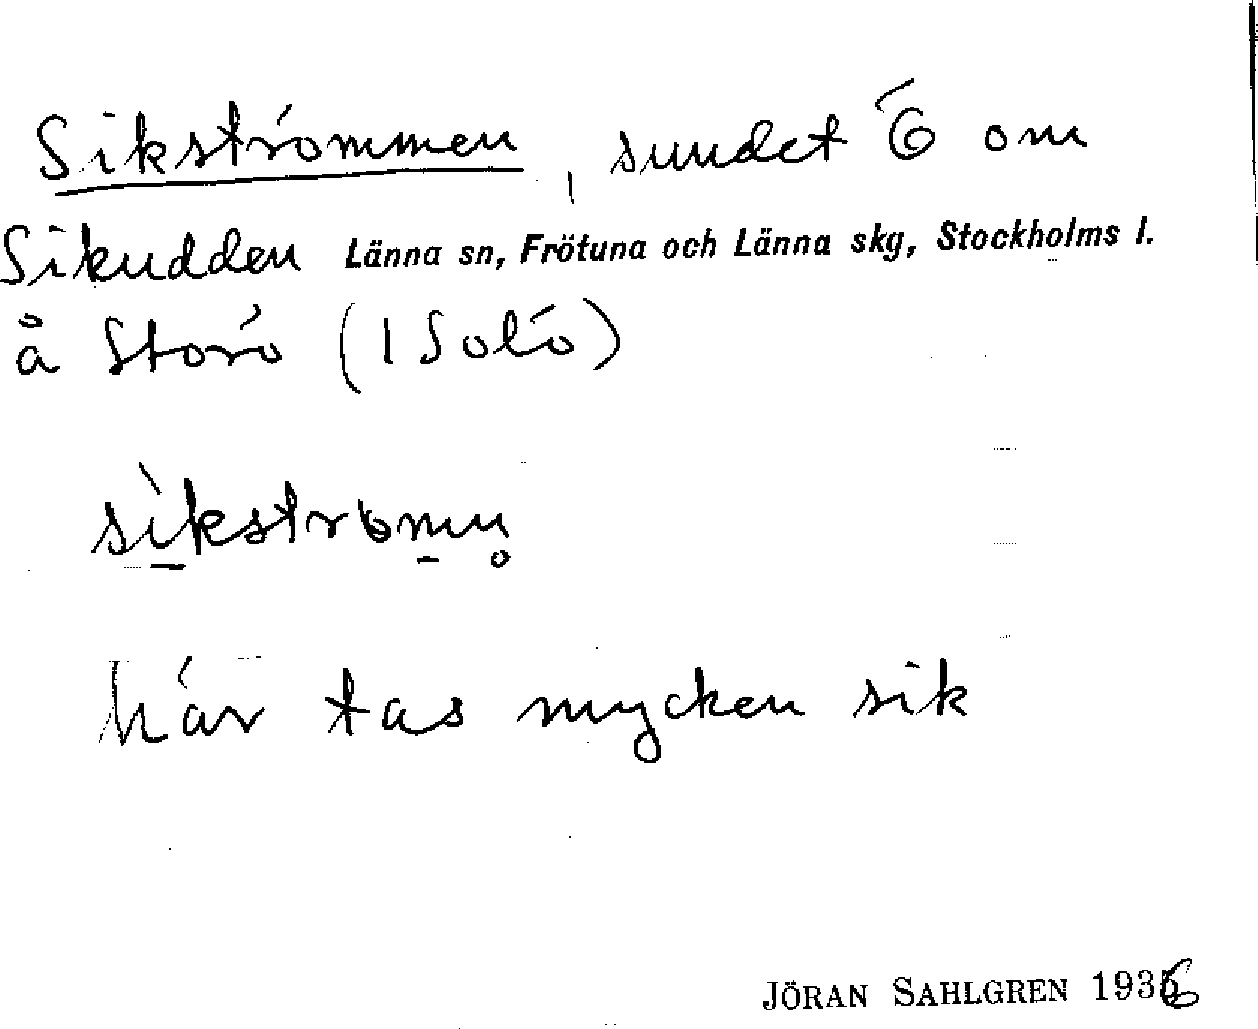 Sikströmmen, sundet Ö om
Sikudden Länna sn, Frötuna och Länna skg, Stockholms l.
å Storö (1 Solö)
sìkstromn̥
här tas mycken sik
JÖRAN SAHLGREN 1936